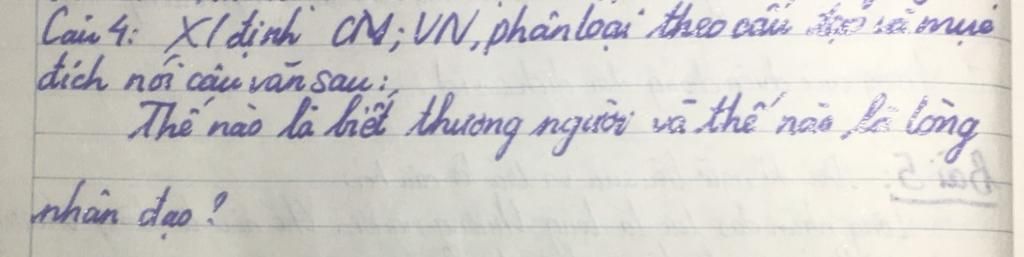 Câu 4: X/định CN; VN, phân loại theo cấu tạo và mục
đích nói câu văn sau:
Thế nào là biết thương người và thế nào là lòng
nhân đạo?